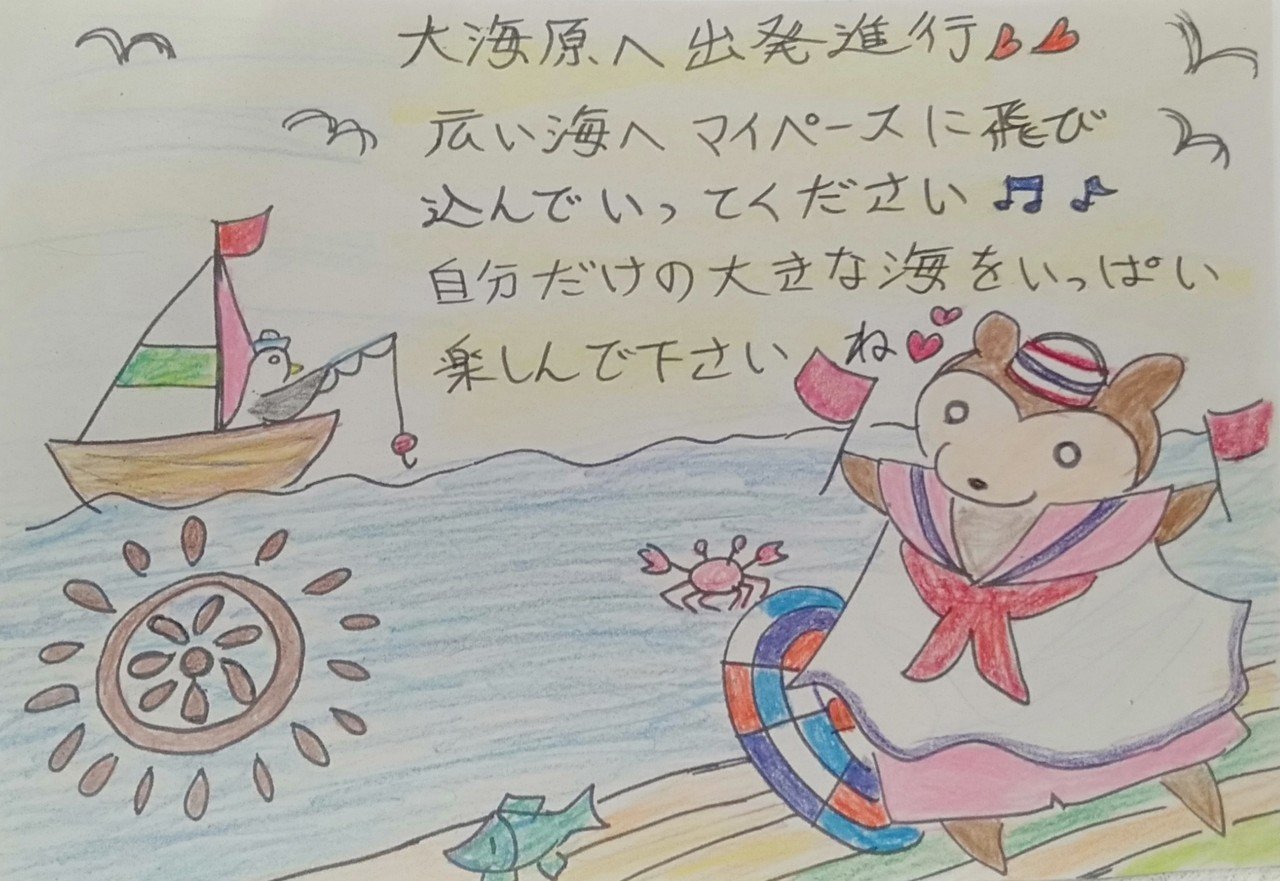 大海原へ出発進行
広い海へマイペースに飛び
込んでいってください
自分だけの大きな海をいっぱい
楽しんで下さいね